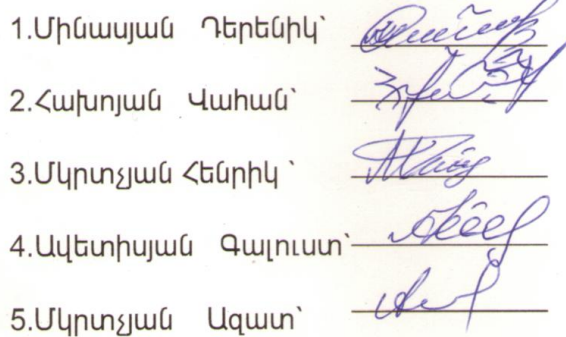 1.Մինասյան Դերենիկ՝
2.Հախոյան Վահան՝
3.Մկրտչյան Հենրիկ ՝
4.Ավետիսյան Գալուստ՝
5.Մկրտչյան Ազատ՝